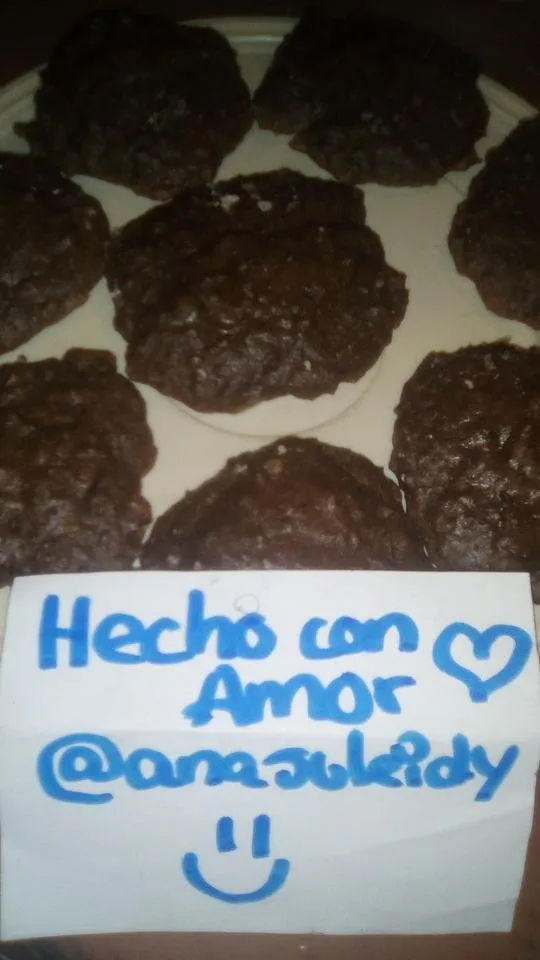 Hecho con
Amor
@anasuleidy